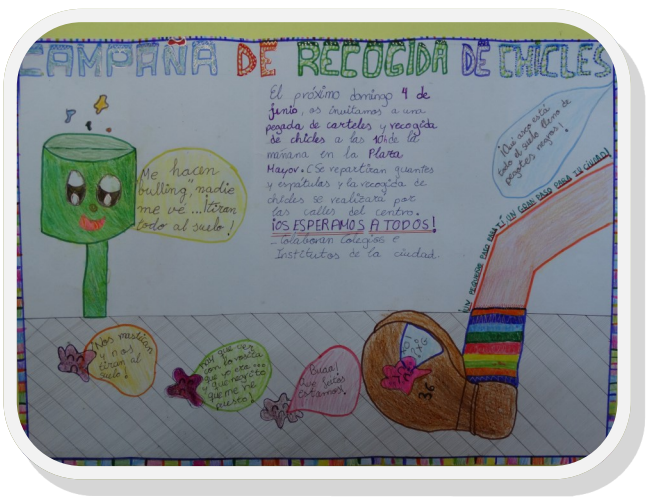 CAMPAÑA DE RECOGIDA DE CHICLES
El próximo domingo 4 de
junio, os invitamos a una
pegada de carteles y recogida
de chicles a las 10h de la
mañana en la Plaza
Mayor. (Se repartirán guantes
y espátulas y la recogida de
chicles se realizará por
las calles del centro.
¡OS ESPERAMOS A TODOS!
- Colaboran colegios e
Institutos de la ciudad.
Me hacen
"bulling", nadie
me ve ...¡tiran
todo al suelo!
¡Qué asco está
todo el suelo lleno de
pegotes negros!
¡UN PEQUEÑO PASO PARA TÍ, UN GRAN PASO PARA TU CIUDAD!
Nos mastican
y nos
tiran al
suelo!
¡Y que ver
con lo rosita
que yo era...
y que negrito
que me he
puesto!
Buaa!
Que feitos
estamos!
36